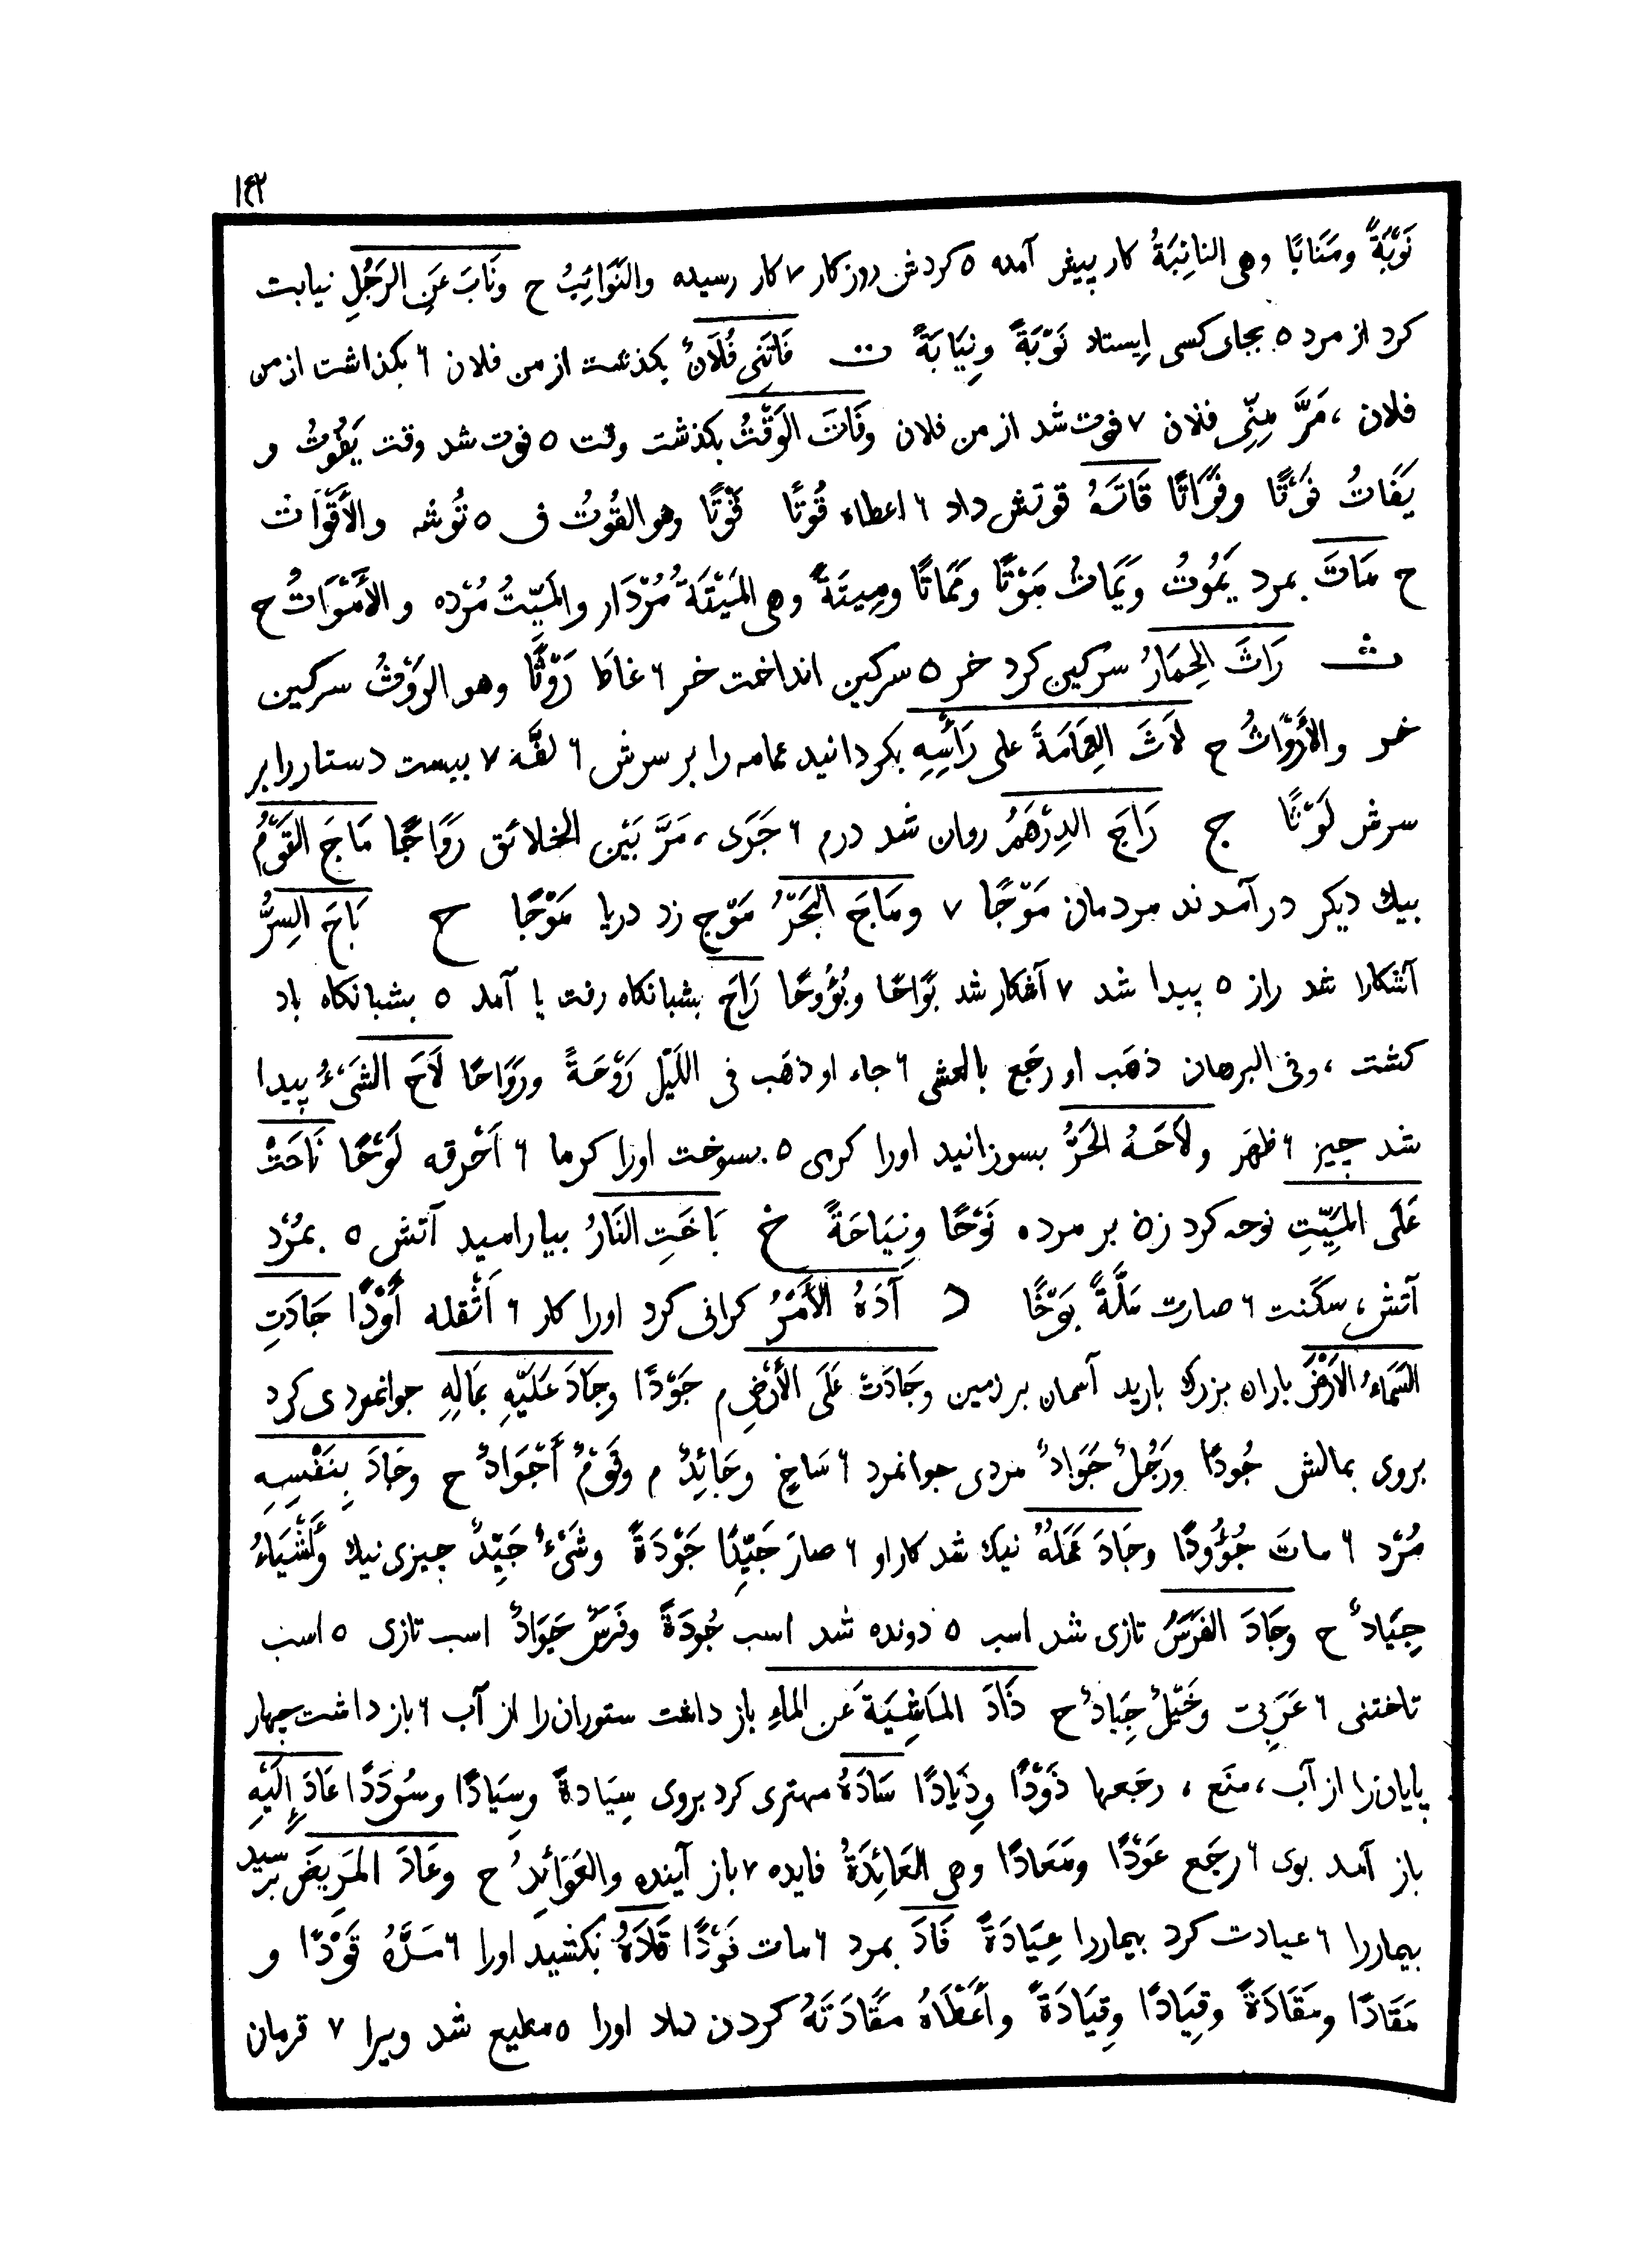 ١٤٢
نَوْبَةً ومَنَابًا وهي النائِبَةُ كار پیش آمده ٥ کردش روزکار ٧ کار رسیده والنَّوَائِبُ ح ونَابَ عَنِ الرَجُلِ نیابت
کرد از مرد ٥ بجای کسی اِیستاد نَوْبَةً ونِيَابَةً ت فَاتَنِي فُلَانٌ بکذشت از من فلان ٦ بکذاشت از من
فلان ، مَرَّ مِنِّي فلان ٧ فوت شد از من فلان وفَاتَ الوَقْتُ بکذشت وقت ٥ فوت شد وقت يَفُوتُ و
يَفَاتُ فَوْتًا وفَوَاتًا قَاتَهُ قوتش داد ٦ اعطاه قُوتًا قَوْتًا وهو القُوتُ ف ٥ تُوشه والأَقْوَاتُ
ح مَاتَ بمرد يَمُوتُ ويَمَاتُ مَوْتًا ومَمَاتًا ومِيتَةً وهي المَيْتَةُ مُرْدَار والمَيِّتُ مُرْده والأَمْوَاتُ ح
ث رَاثَ الحِمَارُ سرکین کرد خر ٥ سرکین انداخت خر ٦ غاطَ رَوْثًا وهو الرَوْثُ سرکین
خر والأَرْوَاثُ ح لَاثَ العِمَامَةَ على رَأْسِهِ بکردانید عمامه را بر سرش ٦ لفَّه ٧ ببست دستار را بر
سرش لَوْثًا ج رَاجَ الدِرْهَمُ روان شد درم ٦ جَرَى ، مَرَّ بَيْن الخلائق رَوَاجًا مَاجَ القَوْمُ
بیك دیکر درآمدند مردمان مَوْجًا ٧ ومَاجَ البَحْرُ مَوْج زد دریا مَوْجًا ح بَاحَ السِرُّ
آشکارا شد راز ٥ پیدا شد ٧ آشکار شد بَوَاحًا وبُؤُوحًا رَاحَ بشبانکاه رفت یا آمد ٥ بشبانکاه باد
کشت ، وفي البرهان ذهَب او رجَع بالعشي ٦ جاء او ذهَب في اللَيْل رَوْحَةً ورَوَاحًا لَاحَ الشَيْءُ پیدا
شد چیز ٦ ظهَر ولَاحَهُ الحَرُّ بسوزانید اورا کرمی ٥ بسوخت اورا کرما ٦ اَحْرقه لَوْحًا نَاحَتْ
عَلَى المَيِّتِ نوحه کرد زن بر مرده نَوْحًا ونِيَاحَةً خ بَاخَتِ النَارُ بیارامید آتش ٥ بمُرْد
آتش ، سکَنت ٦ صارت مَلَّةً بَوْخًا د آدَهُ الأَمْرُ کرانی کرد اورا کار ٦ اَثْقله أَوْدًا جَادَتِ
السَمَاءُ الأَرْضَ باران بزرك بارید آسمان بر زمین وجَادَتْ عَلَى الأَرْضِ م جَوْدًا وجَادَ عَلَيْهِ بِمَالِهِ جوانمردی کرد
بروی بمالش جُودًا ورَجُلٌ جَوَادٌ مردی جوانمرد ٦ سَاخٍ وجَائِدٌ م وقَوْمٌ أَجْوَادٌ ح وجَادَ بِنَفْسِهِ
مُرْد ٦ مات جُؤُودًا وجَادَ عَمَلُهُ نیك شد کار او ٦ صارَ جَيِّدًا جَوْدَةً وشَيْءٌ جَيِّدٌ چیزی نیك وأَشْيَاءُ
جِيَادٌ ح وجَادَ الفَرَسُ تازی شد اسب ٥ دونده شد اسب جُودَةً وفَرَسٌ جَوَادٌ اسب تازی ٥ اسب
تاختنی ٦ عَرَبِيّ وخَيْلٌ جِيَادٌ ح ذَادَ المَاشِيَةَ عَنِ المَاءِ باز داشت ستوران را از آب ٦ باز داشت چهار
پایان را از آب ، منَع ، رجَعها ذَوْدًا وذِيَادًا سَادَهُ مهتری کرد بروی سِيَادةً وسِيَادًا وسُودَدًا عَادَ إِلَيْهِ
باز آمد بوی ٦ رجَع عَوْدًا ومَعَادًا وهي العَائِدَةُ فایده ٧ باز آینده والعَوَائِدُ ح وعَادَ المَرِيضَ بپرسید
بیمار را ٦ عیادت کرد بیمار را عِيَادَةً فَادَ بمرد ٦ مات فَوْدًا قَادَهُ بکشید اورا ٦ مَدَّهُ قَوْدًا و
مَقَادًا ومَقَادَةً وقِيَادًا وقِيَادَةً وأَعْطَاهُ مَقَادَتَهُ کردن داد اورا ٥ مطیع شد ویرا ٧ فرمان